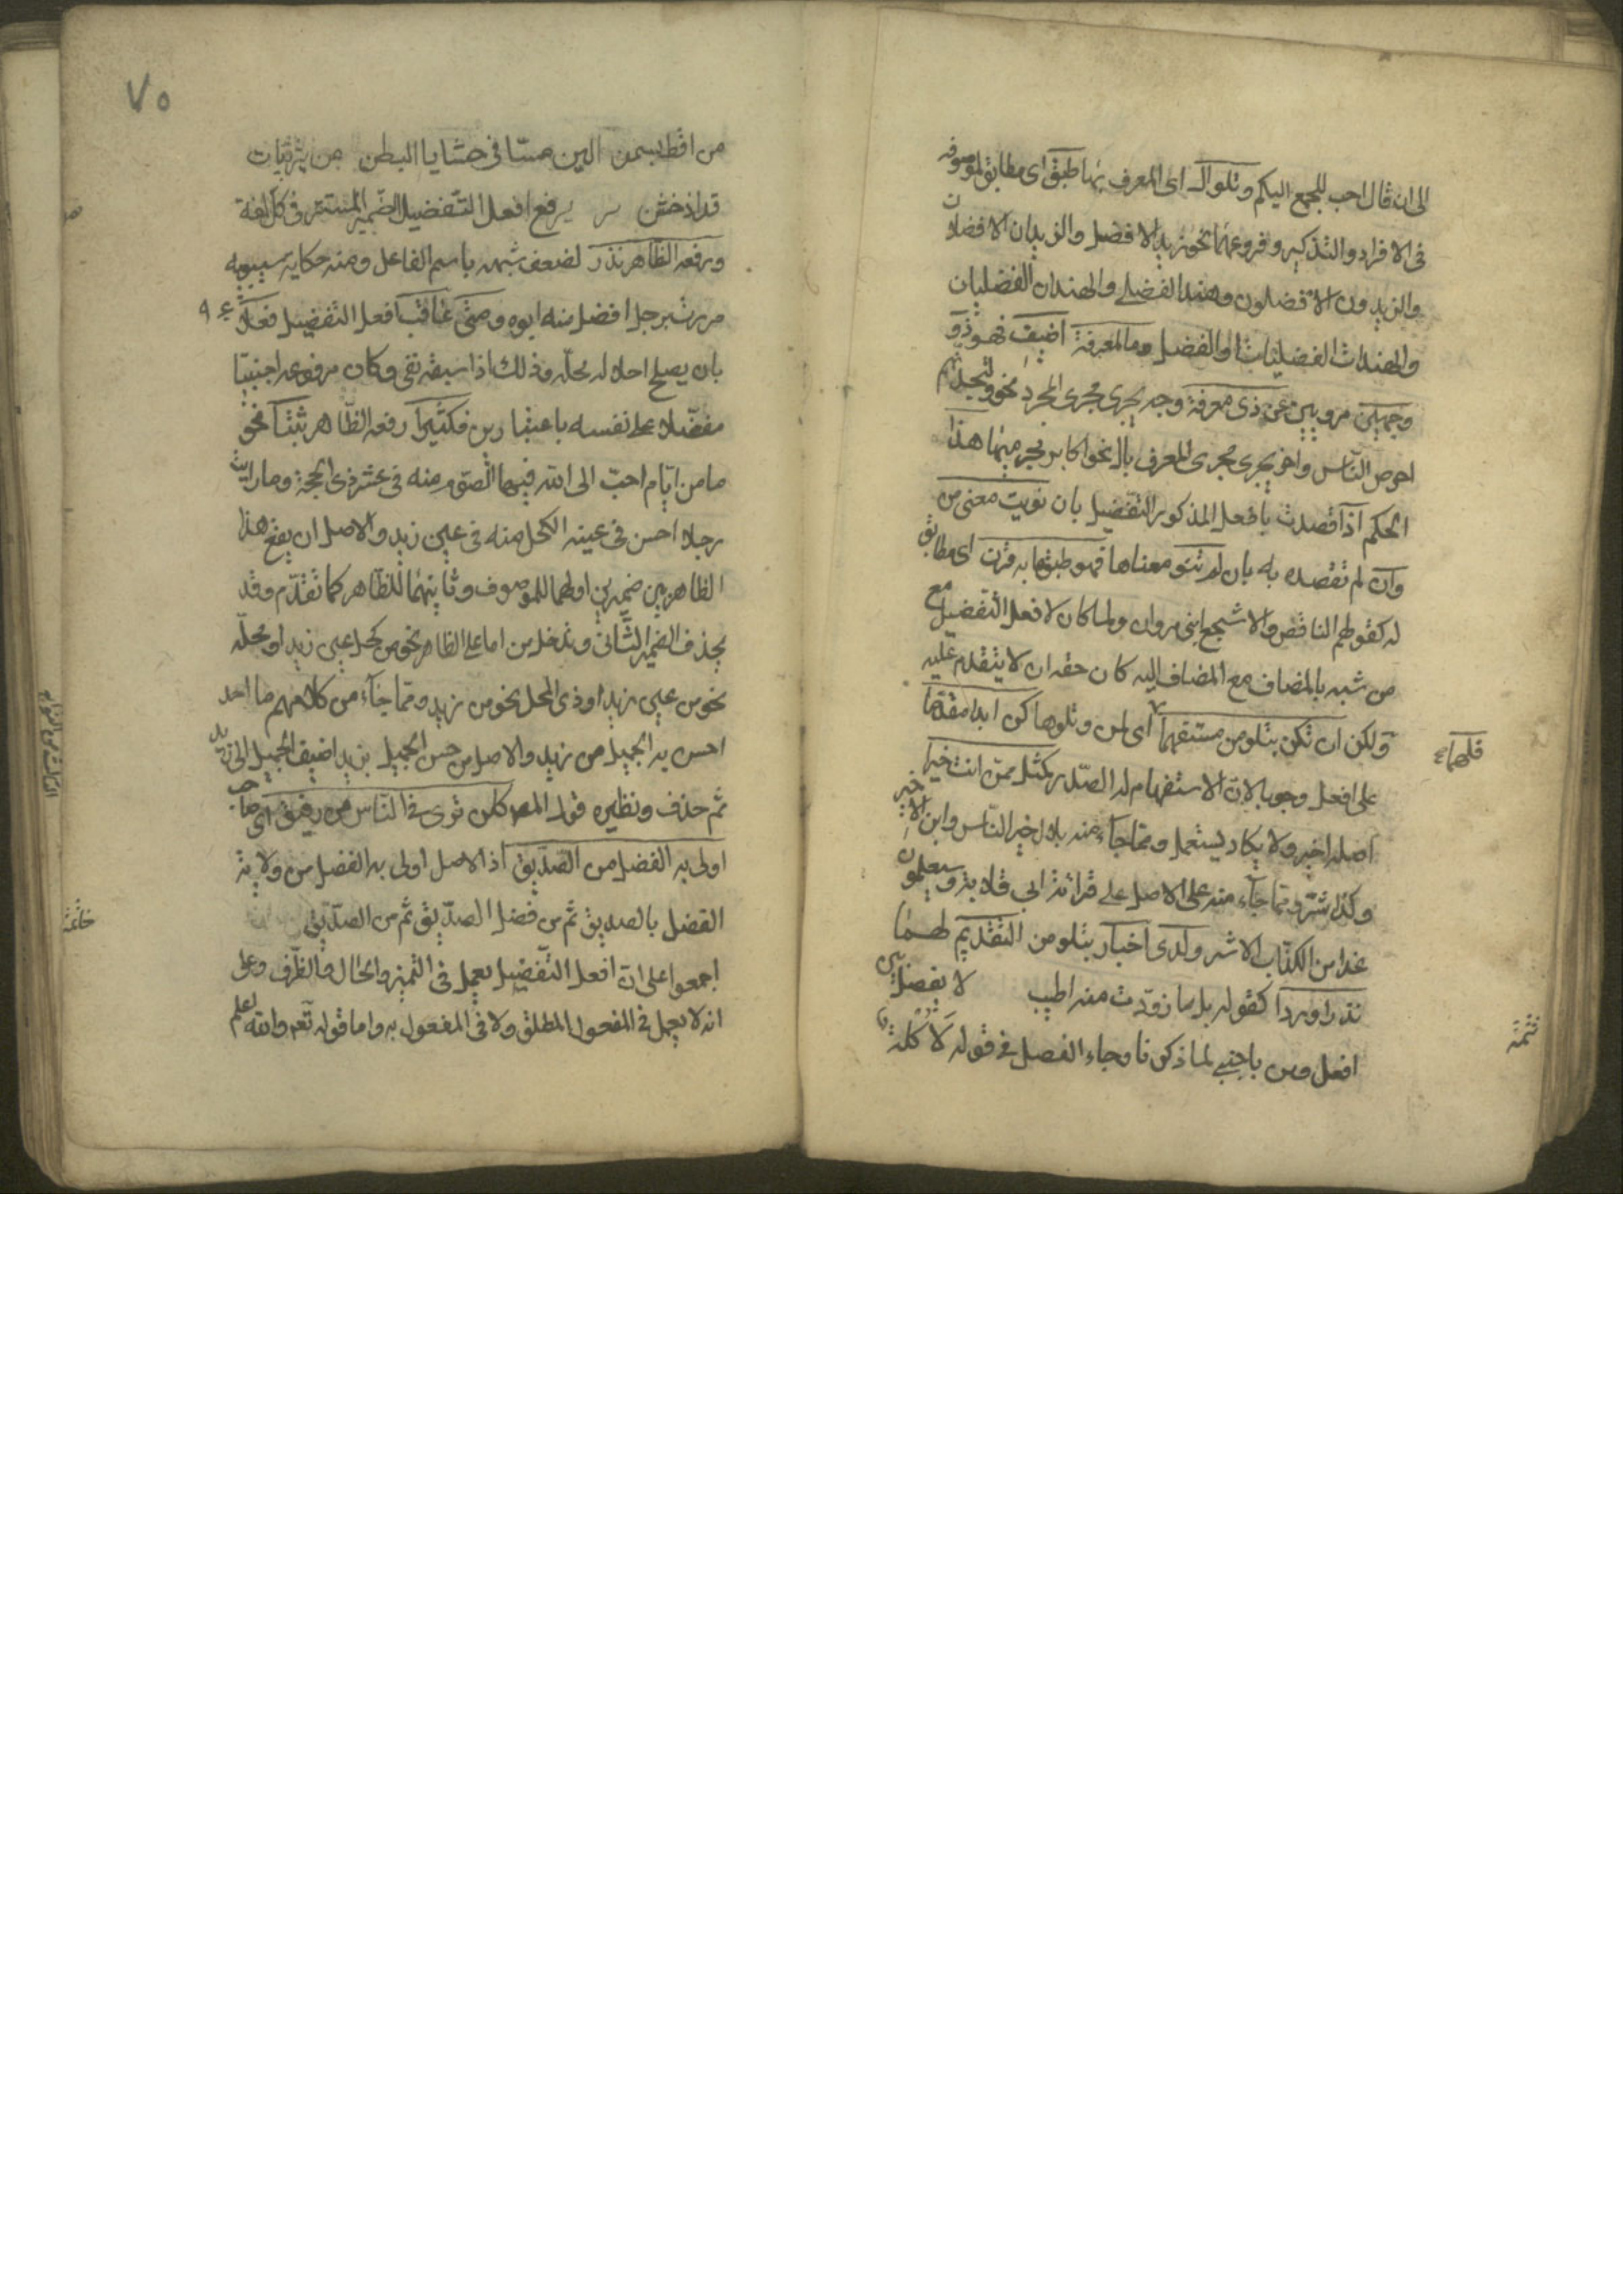 الى ان قال احب للجمع اليكم وتلو ال اى المعرف بها طبق اى مطابق لموصوفه
فى الافراد والتذكير وفروعهما نحو زيد الافضل والزيدان الافضلان
والزيدون الافضلون وهند الفضلى والهندان الفضليان
والهندات الفضليات او الفضل وما لمعرفة اضيف فهو ذو
وجهين مرويين عن ذى معرفة وجه يجرى مجرى المجرد نحو ولتجدنهم
احرص الناس واخر يجرى مجرى المعرف بال نحو اكابر مجرميها هذا
الحكم اذا قصدت بافعل المذكور التفضيل بان نويت معنى من
وان لم تقصده به بان لم تنو معناها فهو طبق ما به قرن اى مطابق
له كقولهم الناقص والاشج اعدلا بنى مروان ولما كان لافعل التفضيل مع
من شبه بالمضاف مع المضاف اليه كان حقه ان لا يتقدم عليه
ولكن ان تكن بتلو من مستفهما اى لمن وتلوها كن ابدا مقدما
فلهما
على افعل وجوبا لان الاستفهام له الصدر كمثل ممن انت خير
اصله اخير ولا يكاد يستعمل ومما جاء منه بلال خير الناس وابن الاخير
وكذا شر ومما جاء منه على الاصل على قراءة ابى قلابة وسيعلمون
غدا من الكذاب الاشر ولدى اخبار بتلو من التقديم لهما
نذرا وردا كقوله بل ما زودت منه اطيب لا يفصل بين
تتمة
افعل ومن باجنبى لما ذكرنا وجاء الفصل فى قوله لاكلة
٧٥
من اقط بسمن الين مسا فى حشايا البطن من يثربيات
قذاذ خشن يرفع افعل التفضيل الضمير المستتر فى كل لغة
ورفعه الظاهر نذر لضعف شبهه باسم الفاعل ومنه حكاية سيبويه
مررت برجل افضل منه ابوه ومتى عاقب افعل التفضيل فعلا
بان يصلح احلاله محله وذلك اذا سبقه نفى وكان مرفوعه اجنبيا
مفضلا على نفسه باعتبارين فكثيرا رفعه الظاهر ثبتا نحو
ما من ايام احب الى الله فيها الصوم منه فى عشر ذى الحجة وما رايت
رجلا احسن فى عينه الكحل منه فى عين زيد والاصل ان يقع هذا
الظاهر بين ضميرين اولهما للموصوف وثانيهما للظاهر كما تقدم وقد
يحذف الضمير الثانى وتدخل من اما على الظاهر نحو من كحل عين زيد او محله
نحو من عين زيد او ذى المحل نحو من زيد ومما جاء من كلامهم ما احد
احسن به الجميل من زيد والاصل من حسن الجميل بزيد اضيف الجميل الى زيد
ثم حذف ونظيره قول المصر كلن ترى فى الناس من رفيق اى صاحب
اولى به الفضل من الصديق اذ الاصل اولى به الفضل من ولاية
الفضل بالصديق ثم من فضل الصديق ثم من الصديق
خاتمة
اجمعوا على ان افعل التفضيل يعمل فى التميز والحال والظرف وعلى
انه لا يعمل فى المفعول المطلق ولا فى المفعول به واما قوله تعم والله اعلم